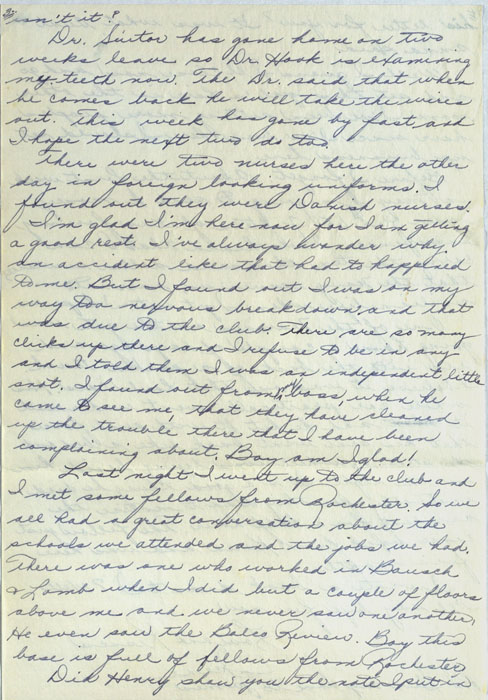 isn't it?
Dr. Sintor has gone home on two
weeks leave so Dr. Hook is examining
my teeth now. The Dr. said that when
he comes back he will take the wires
out. This week has gone by fast, and
I hope the next two do too.
There were two nurses here the other
day in foreign looking uniforms. I
found out they were Danish nurses.
I'm glad I'm here now for I am getting
a good rest. I've always wonder why
an accident like that had to happened
to me. But I found out I was on my
way to a nervous breakdown, and that
was due to the club. There are so many
clicks up there and I refuse to be in any
and I told them I was an independent little
snot. I found out from my boss, when he
came to see me, that they have cleaned
up the trouble there that I have been
complaining about. Boy am I glad!
Last night I went up to the club and
I met some fellows from Rochester. So we
all had a great conversation about the
schools we attended and the jobs we had.
There was one who worked in Bausch
& Lomb when I did but a couple of floors
above me and we never saw one another.
He even saw the Balco Review. Boy this
base is full of fellows from Rochester
Did Henry show you the note I put in